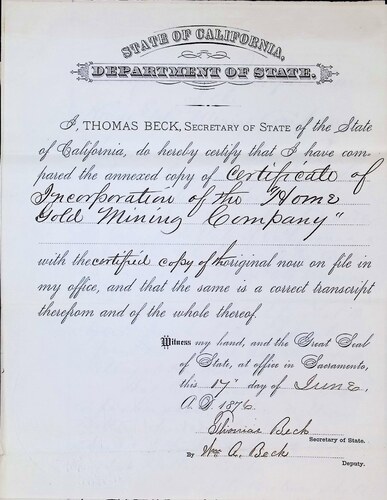 STATE OF CALIFORNIA,
DEPARTMENT OF STATE.
I, THOMAS BECK, SECRETARY OF STATE of the State
of California, do hereby certify that I have com-
pared the annexed copy of Certificate of
Incorporation of the "Home
Gold Mining Company"
with the certified copy of the original now on file in
my office, and that the same is a correct transcript
therefrom and of the whole thereof.
Witness my hand, and the Great Seal
of State, at office in Sacramento,
this 17" day of June,
A. D. 1876.
Thomas Beck
Secretary of State.
By Wm A. Beck
Deputy.